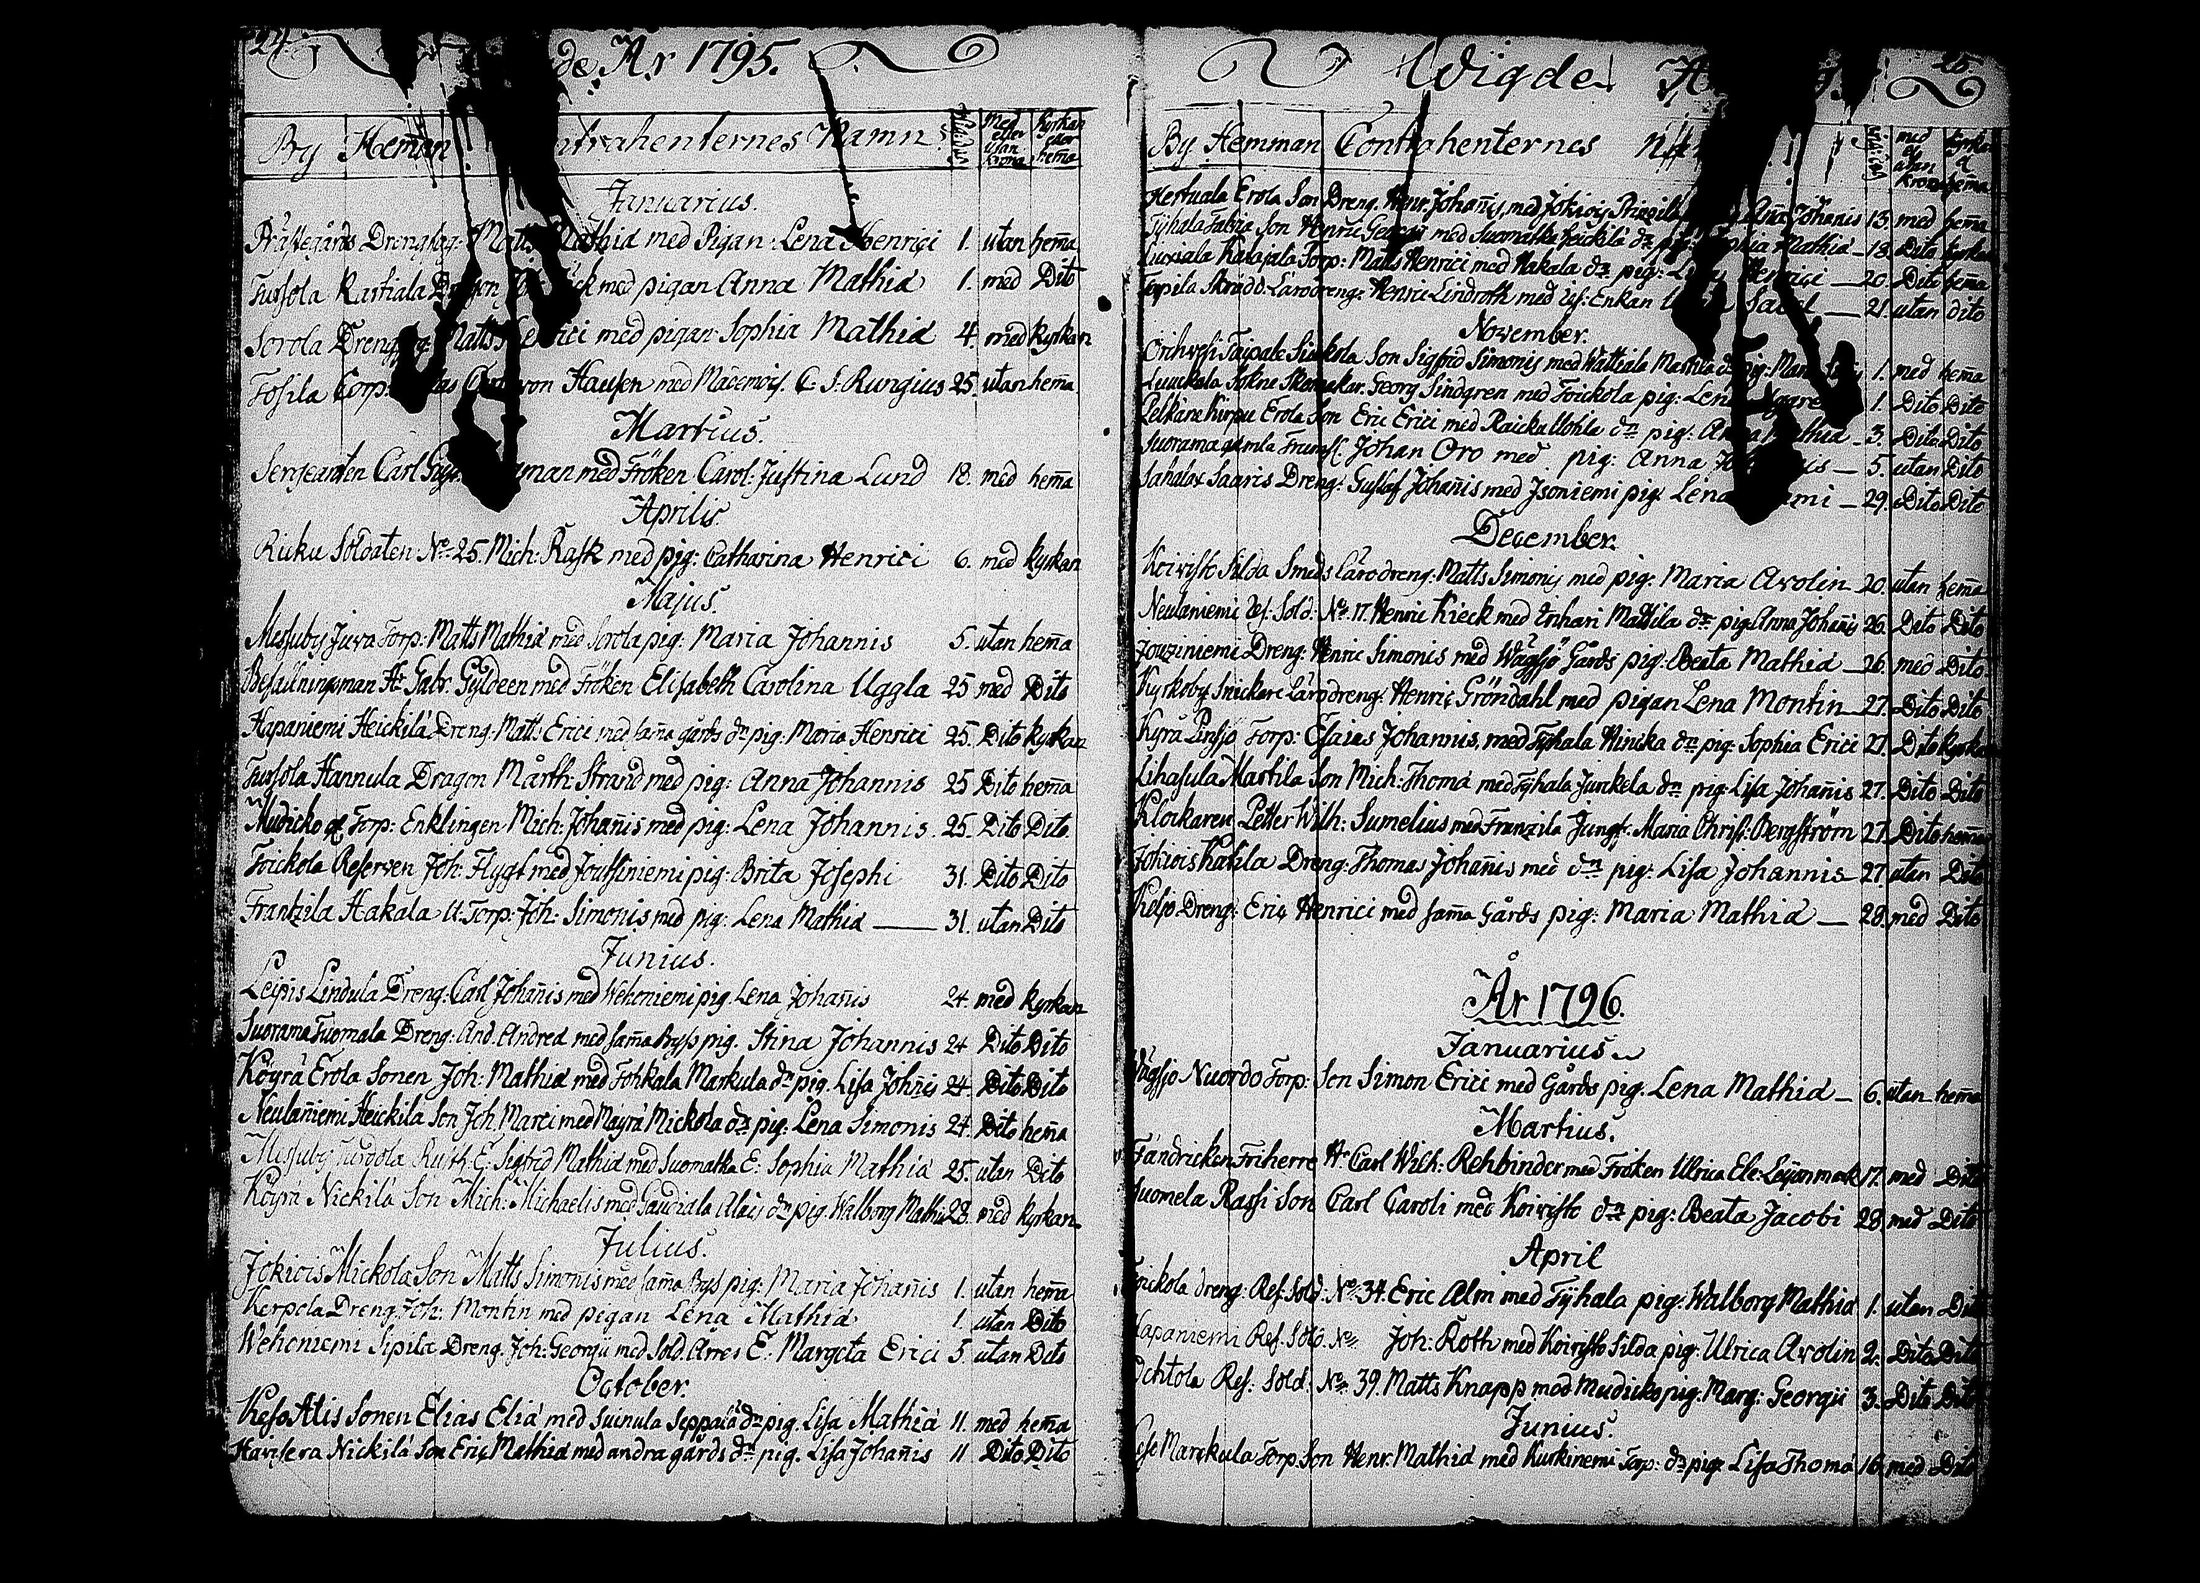 24.
de År 1795.
By Heman Contrahenternes Namn Med eller utan krona Kyrkan eller hema
Januarius.
Prästegårds Dreng Matts Mathiæ med Pigan Lena Henrici 1. utan hema
Tursola Rastiala med pigan Anna Mathiæ 1. med Dito
Sorola Dreng Matts med pigan Sophia Mathiæ 4. med kyrkan
Corp: von Hausen med Mademois. C: S: Rungius 25. utan hema
Martius.
Sergeanten Carl man med Fröken Carol: Justina Lund 18. med hema
Aprilis.
Ruku Soldaten No 25. Mich: Rask med pig: Catharina Henrici 6. med kyrkan
Majus.
Messuby Juva Torp: Matts Mathiæ med Sorola pig: Maria Johannis 5. utan hema
Befallningsman Hr Gabr. Gyldeen med Fröken Elisabeth Carolina Uggla 25 med Dito
Hapaniemi Heickilä Dreng: Matts Erici med sama gårds dr pig: Maria Henrici 25. Dito kyrkan
Tursola Hannula Dragon Mårth: Strand med pig: Anna Johannis 25 Dito hema
Mudicko Torp: Enklingen Mich: Johanis med pig: Lena Johannis 25. Dito Dito
Toickola Reserven Joh: Flygt med Joussiniemi pig: Brita Josephi 31. Dito Dito
Frantzila Hakala U: Torp: Joh: Simonis med pig: Lena Mathiæ 31. utan Dito
Junius.
Leipis Lindula Dreng: Carl Johanis med Wehoniemi pig. Lena Johanis 24. med kyrkan
Suorama Tuomala Dreng: And: Andreæ med sama Bys pig. Stina Johannis 24 Dito Dito
Köyrä Erola Sonen Joh: Mathiæ med Tohkala Markula dr pig. Lisa Johnis 24. Dito Dito
Neulaniemi Heickilä Son Joh. Marci med Mäyrä Mickola dr pig: Lena Simonis 24. Dito hema
Messuby E: Sigfrid Mathiæ med Suomatka E: Sophia Mathiæ 25. utan Dito
Köyrä Nickilä Son Mich: Michaelis med Alais dr pig. Walborg Mathiæ 28. med kyrkan
Julius.
Jokiois Mickola Son Matts Simonis med sama Bys pig: Maria Johanis 1. utan hema
Kerpola Dreng Joh: Montin med pigan Lena Mathiæ 1. utan Dito
Wehoniemi Sipilä Dreng. Joh: Georgii med Sold. Arres E: Margeta Erici 5. utan Dito
October.
Keso Alis Sonen Elias Eliæ med Suinula Seppälä dr pig. Lisa Mathiæ 11. med hema
Havisera Nickilä Son Eric Mathiæ med andra gårds dr pig. Lisa Johanis 11 Dito Dito
Wigde 25.
By Hemman Contrahenternes med el utan krona kyrkan el hema
Hertuala Erola Son Dreng. Henr. Johanis, med Jokiois Anna Johanis 13. med hema
Tyhala Son Henric Georgii med Suomatka Heickilä dr pig: Mathiæ 18. Dito kyrkan
Torp: Matts Henrici med Hakala dr pig: Henrici 20. Dito hema
Skrädd: Lärodreng: Henric Lindroth med Enkan 21. utan dito
November.
Orihvesi Taipale Son Sigfrid Simonis med Wattiala Mattila dr pig: 1. med hema
Luuckala Sokne Skomakar. Georg Lindgren med Toickola pig: Lena 1. Dito Dito
Pelkäne Kirpu Erola Son Eric Erici med Raicku Uohla dr pig: Anna Mathiæ 3. Dito Dito
Suorama gamla Johan Oro med pig: Anna 5. utan Dito
Sahalax Saaris Dreng: Gustaf Johanis med Isoniemi pig: Lena 29. Dito Dito
December.
Koivisto Silda Smeds Lärodreng: Matts Simonis med pig: Maria Avolin 20. utan hema
Neulaniemi Sold: No 17. Henric Kieck med Mattila dr pig: Anna Johanis 26. Dito Dito
Jouxiniemi Dreng: Henric Simonis med Wägsjö Gårds pig: Beata Mathiæ 26. med Dito
Kyrkoby Snickare Lärodreng: Henric Gröndahl med pigan Lena Montin 27. Dito Dito
Kyrä Torp: Esaias Johannis, med Tyhala Hinika dr pig: Sophia Erici 27. Dito kyrkan
Lihasula Martila Son Mich: Thomæ med Tyhala Junckela dr pig: Lisa Johanis 27. Dito Dito
Klockaren Petter Wilh: Sumelius med Franzila Jungf: Maria Christ: Bergström 27. Dito hema
Jokiois Dreng: Thomas Johanis med dr pig: Lisa Johannis 27. utan Dito
Keljo Dreng: Eric Henrici med sama Gårds pig: Maria Mathiæ 28. med Dito
År 1796.
Januarius
Wägsjö Nuordo Torp: Son Simon Erici med Gårds pig. Lena Mathiæ 6. utan hema
Martius.
Fändricken Friherre Hr Carl Wilh: Rehbinder med Fröken Ulrica Ele: Leijonmark 17. med Dito
Suomela Rassi Son Carl Caroli med Koivisto dr pig: Beata Jacobi 28. med Dito
April
Toickola dreng: Ref: Sold: No 34. Eric Alm med Tyhala pig: Walborg Mathiæ 1. utan Dito
Hapaniemi Ref: Sold: No Joh: Roth med Koivisto Silda pig: Ulrica Avolin 2. Dito Dito
Ochtola Ref: Sold: No 39. Matts Knapp med Mudicko pig: Marg: Georgii 3. Dito Dito
Junius.
Marckula Torp: Son Henr. Mathiæ med Kurkinemi Torp: dr pig: Lisa Thomæ 16. med Dito